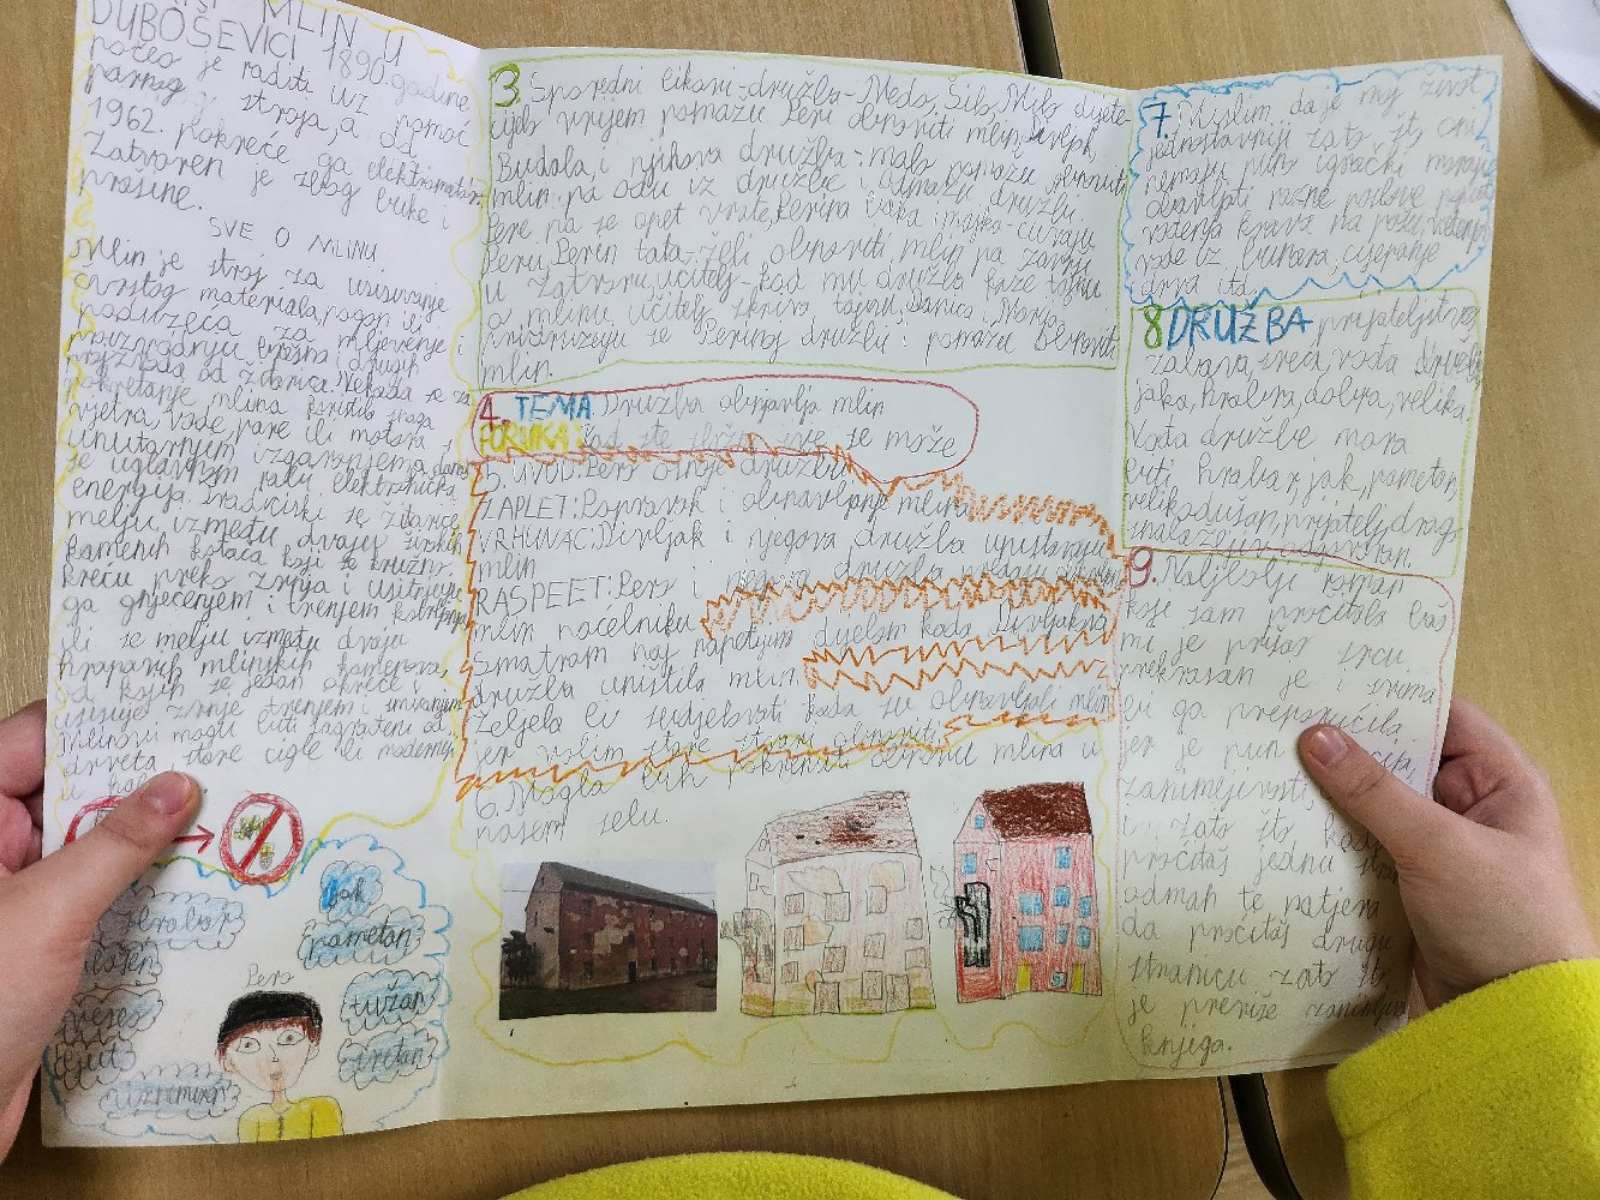 MLIN U
DUBOŠEVICI 1890. godine
počeo je raditi uz pomoć
parnog stroja, a od
1962. pokreće ga elektromotor.
Zatvoren je zbog buke i
prašine.
SVE O MLINU
Mlin je stroj za usisavanje
čvrstog materiala, pogon ili
poduzeća za mljevenje i
proizvodnju brašna i drugih
proizvoda od žitarica. Nekada se za
pokretanje mlina koristila snaga
vjetra, vode, pare ili motora s
unutarnjim izgaranjem, a danas
je uglavnom rabi električna
energija. Tradicijski se žitarice
melju između dvaju
kamenih kotača koji se kružno
kreću preko zrnja i usitnjuju
ga gnječenjem i trenjem kotrljanja
ili se melju između dvaju
hrapavih mlinskih kamenova,
od kojih se jedan okreće i
usisuje zrnje trenjem i
Mlinovi mogu biti sagrađeni od
drveta, stare cigle ili moderniji
u
Hrabar
jak
pametan
Pero
tužan
sretan
veseo
3. Sporedni likovi-družba-Medo, Šilo, Milo dijete-
cijelo vrijem pomažu Peri obnoviti mlin, Divljak,
Budala, i njihova družba-malo pomažu obnoviti
mlin pa odu iz družbe i odmažu družbi
Pere pa se opet vrate, Perina baka i majka-čuvaju
Peru, Perin tata-želi obnoviti mlin pa završi
u zatvoru, učitelj-kad mu družba kaže tajnu
o mlinu učitelj skriva tajnu. Danica i Marija
pridružuju se Perinoj družbi i pomažu obnoviti
mlin.
4. TEMA: Družba obnavlja mlin
PORUKA: Kad ste složni sve se može
5. UVOD: Pero osnuje družbu
ZAPLET: Popravak i obnavljanje mlina
VRHUNAC: Divljak i njegova družba uništavaju
mlin
RASPLET: Pero i njegova družba predaju
mlin načelniku
Smatram naj napetijim dijelom kada Divljakova
družba uništila mlin
Željela bi sudjelovati kada su obnavljali mlin
jer volim stare stvari obnoviti.
6. Mogla bih pokrenuti obnovu mlina u
našem selu.
7. Mislim da je moj život
jednostavniji zato što oni
nemaju puno igrački moraju
obavljati razne poslove poput
vođenja krava na pašu, vađenja
vode iz bunara, cijepanje
drva itd.
8 DRUŽBA prijateljstvo,
zabava, sreća, vođa družbe,
jaka, hrabra, dobra, velika.
Vođa družbe mora
biti hrabar, jak, pametan,
velikodušan, prijatelj, drag,
snalažljiv, odgovoran.
9. Najbolji roman
koji sam pročitala baš
mi je prirastao srcu
prekrasan je i svima
bi ga preporučila
jer je pun
zanimljivosti,
i zato što kada
pročitaš jednu stranicu
odmah te natjera
da pročitaš drugu
stranicu zato što
je previše zanimljiva
knjiga.